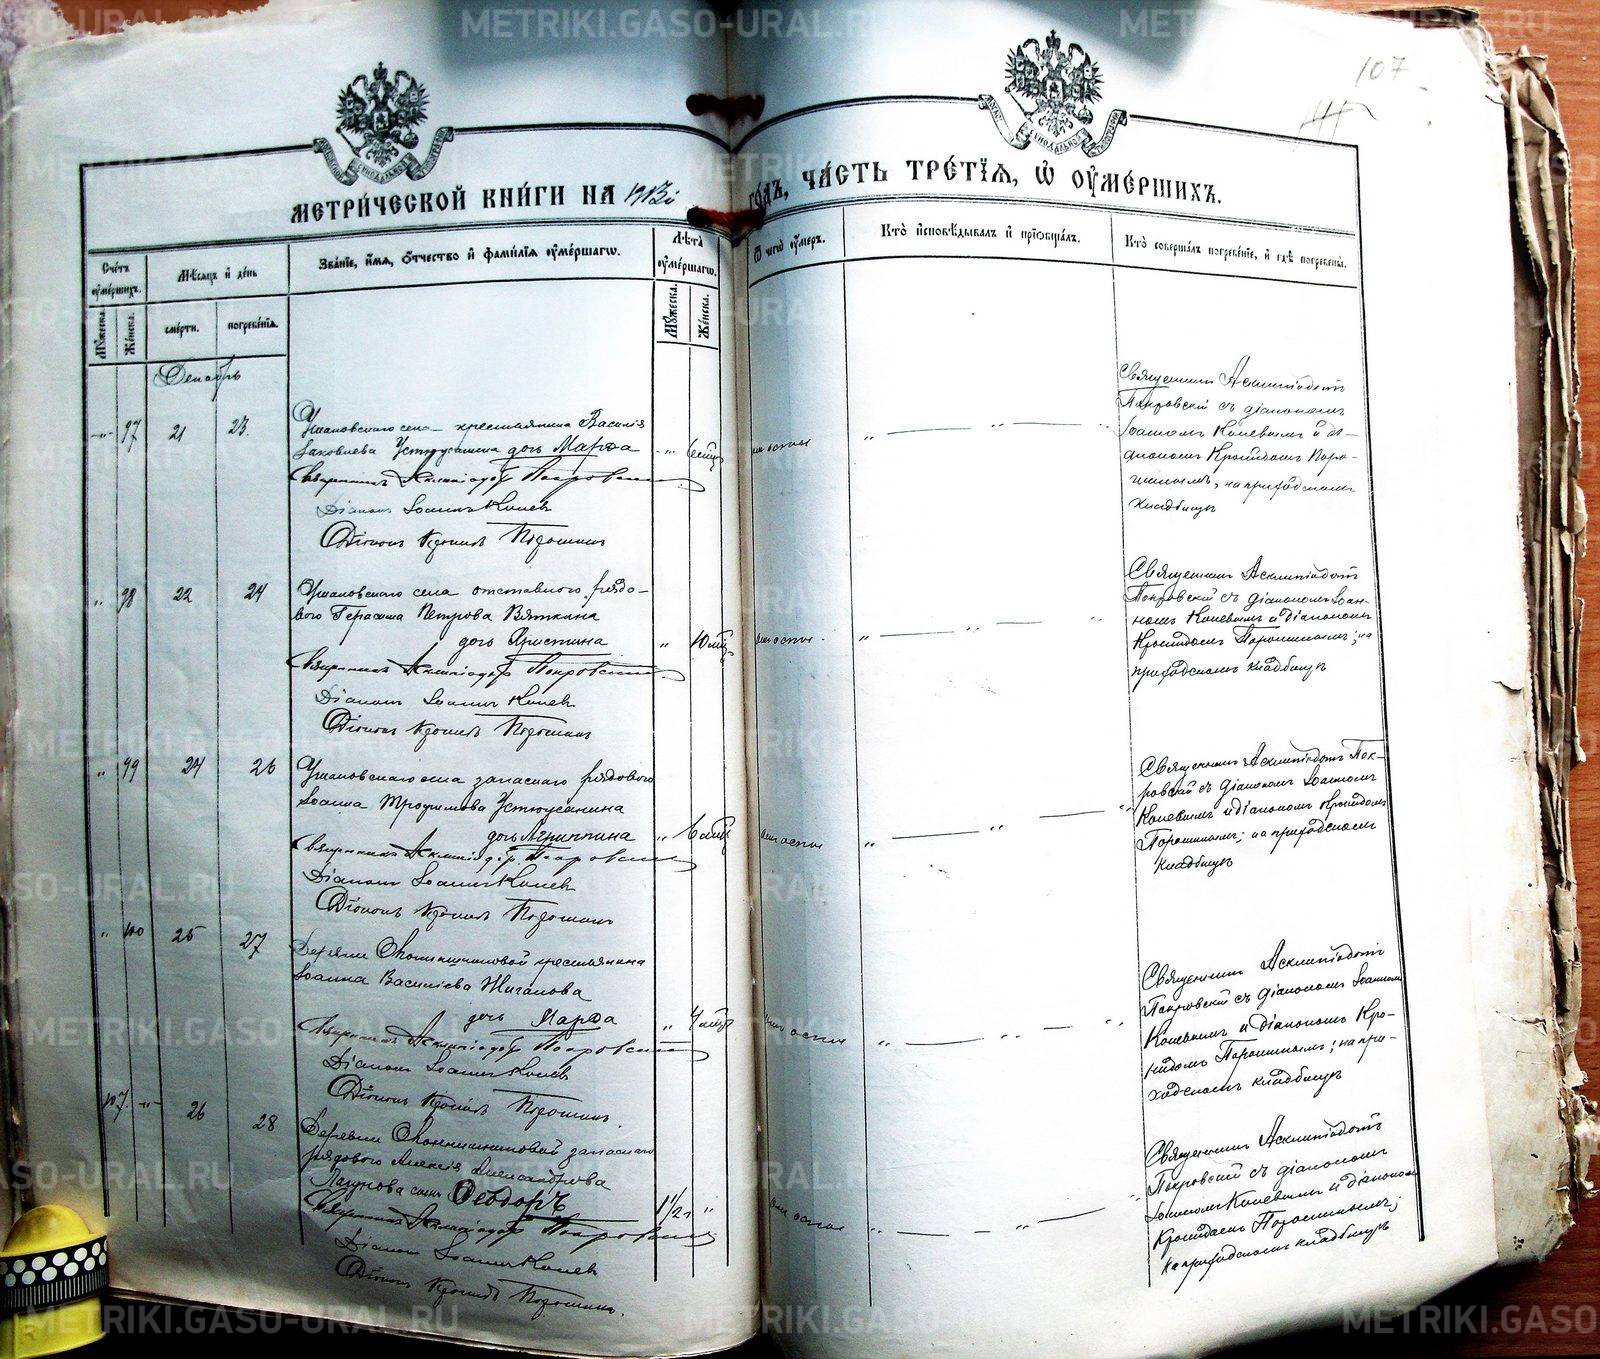 METRIKI.GASO-URAL.RU
107
МЕТРИ́ЧЕСКОЙ КНИ́ГИ НА 1913й
ГОДЪ, ЧА́СТЬ ТРЕ́ТЇѦ, Ѿ ОУ҆МЕ́РШИХЪ.
Сче́тъ оу҆ме́ршихъ.
Мѣ́сѧцъ и҆ де́нь
Зва́нїе, и҆́мѧ, ѻ҆́тчество и҆ фами́лїѧ оу҆ме́ршагѡ.
Лѣ́та оу҆ме́ршагѡ.
Ѿ чегѡ̀ оу҆́меръ.
Кто̀ и҆сповѣ́дывалъ и҆ прїѡбща́лъ.
Кто̀ соверша́лъ погребе́нїе, и҆ гдѣ̀ погребены̀.
Мꙋ́жеска.
Же́нска.
сме́рти.
погребе́нїѧ.
Мꙋ́жеска.
Же́нска.
Декабрь
97 21 23.
крестьянина Василія
Іаковлева Устюжанина дочь Марѳа
отъ оспы
Священникъ Асклипіодотъ Покровскій
Діаконъ Іоаннъ Копевъ
Діаконъ Кронидъ Порошинъ
Священникъ Асклипіодотъ
Покровскій съ діакономъ
Іоанномъ Копевымъ и ді-
акономъ Кронидомъ Поро-
шинымъ, на приходскомъ
кладбищѣ
98 22 24
села отставного рядо-
вого Герасима Петрова Вяткина
дочь Христина
10 мѣс.
отъ оспы
Священникъ Асклипіодотъ Покровскій
Діаконъ Іоаннъ Копевъ
Діаконъ Кронидъ Порошинъ
Священникъ Асклипіодотъ
Покровскій съ діакономъ Іоан-
номъ Копевымъ и діакономъ
Кронидомъ Порошинымъ; на
приходскомъ кладбищѣ
99 24 26
села запаснаго рядового
Іоанна Трофимова Устюжанина
дочь Агриппина
6 мѣс
отъ оспы
Священникъ Асклипіодотъ Покровскій
Діаконъ Іоаннъ Копевъ
Діаконъ Кронидъ Порошинъ
Священникъ Асклипіодотъ Пок-
ровскій съ діакономъ Іоанномъ
Копевымъ и діакономъ Кронидомъ
Порошинымъ; на приходскомъ
кладбищѣ
100 25 27
Деревни крестьянина
Іоанна Василіева Жиганова
дочь Марѳа
4 мѣс
отъ оспы
Священникъ Асклипіодотъ Покровскій
Діаконъ Іоаннъ Копевъ
Діаконъ Кронидъ Порошинъ.
Священникъ Асклипіодотъ
Покровскій съ діакономъ Іоанномъ
Копевымъ и діакономъ Кро-
нидомъ Порошинымъ; на при-
ходскомъ кладбищѣ
107. 26 28
Деревни запаснаго
рядового Алексія Александрова
сынъ Ѳеодоръ
1 1/2 г
отъ оспы
Священникъ Асклипіодотъ Покровскій
Діаконъ Іоаннъ Копевъ
Діаконъ Кронидъ Порошинъ.
Священникъ Асклипіодотъ
Покровскій съ діакономъ
Іоанномъ Копевымъ и діакономъ
Кронидомъ Порошинымъ;
на приходскомъ кладбищѣ